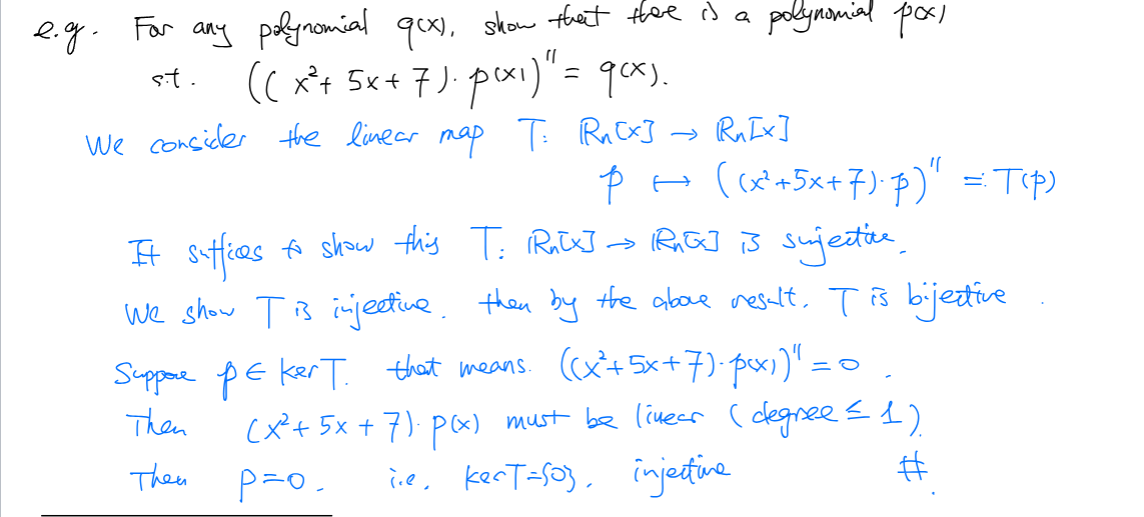 e.g. For any polynomial q(x), show that there is a polynomial p(x)
s.t. ((x²+5x+7)·p(x))'' = q(x).
We consider the linear map T: ℝₙ[x] → ℝₙ[x]
p ↦ ((x²+5x+7)·p)'' =: T(p)
It suffices to show this T: ℝₙ[x] → ℝₙ[x] is surjective.
We show T is injective. then by the above result, T is bijective.
Suppose p ∈ ker T. that means. ((x²+5x+7)·p(x))'' = 0.
Then (x²+5x+7)·p(x) must be linear (degree ≤ 1).
Then p=0. i.e. ker T={0}, injective #.